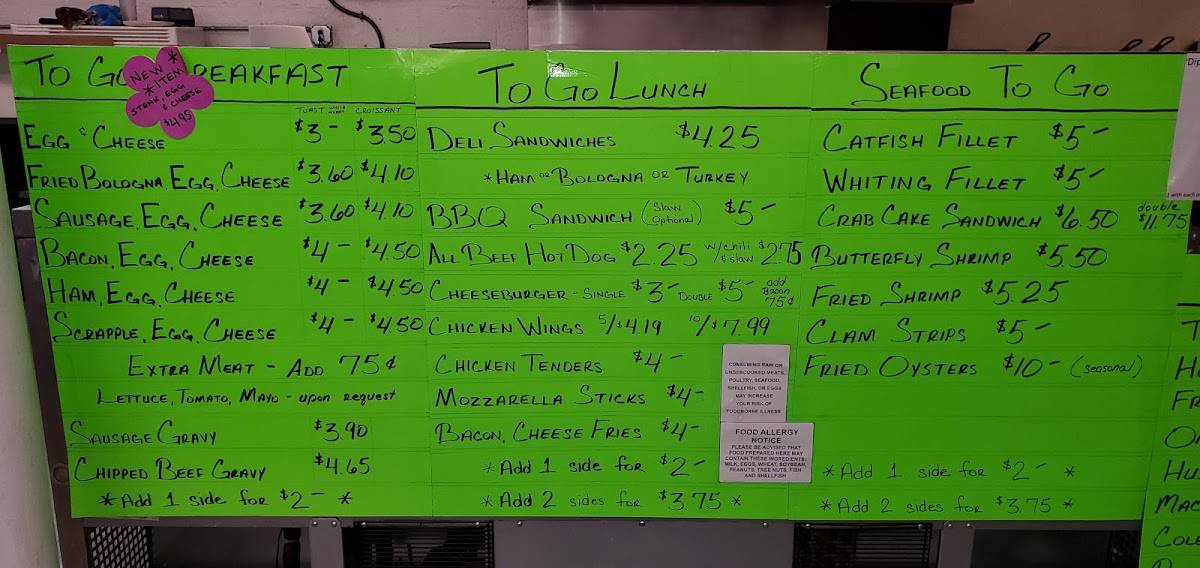 To Go Breakfast
*
New
* Item
Steak, Egg
& Cheese
$4.95
Toast Croissant
Egg & Cheese $3- $3.50
Fried Bologna, Egg, Cheese $3.60 $4.10
Sausage, Egg, Cheese $3.60 $4.10
Bacon, Egg, Cheese $4- $4.50
Ham, Egg, Cheese $4- $4.50
Scrapple, Egg, Cheese $4- $4.50
Extra Meat - Add 75¢
Lettuce, Tomato, Mayo - upon request
Sausage Gravy $3.90
Chipped Beef Gravy $4.65
* Add 1 side for $2- *
To Go Lunch
Deli Sandwiches $4.25
* Ham or Bologna or Turkey
BBQ Sandwich (Slaw Optional) $5-
All Beef Hot Dog $2.25 w/chili & slaw $2.75
Cheeseburger - Single $3- Double $5- add Bacon 75¢
Chicken Wings 5/$4.19 10/$7.99
Chicken Tenders $4-
Mozzarella Sticks $4-
Bacon, Cheese Fries $4-
* Add 1 side for $2-
* Add 2 sides for $3.75 *
CONSUMING RAW OR
UNDERCOOKED MEATS,
POULTRY, SEAFOOD,
SHELLFISH, OR EGGS
MAY INCREASE
YOUR RISK OF
FOODBORNE ILLNESS
FOOD ALLERGY
NOTICE
PLEASE BE ADVISED THAT
FOOD PREPARED HERE MAY
CONTAIN THESE INGREDIENTS:
MILK, EGGS, WHEAT, SOYBEAN,
PEANUTS, TREE NUTS, FISH
AND SHELLFISH
Seafood To Go
Catfish Fillet $5-
Whiting Fillet $5-
Crab Cake Sandwich $6.50 double $11.75
Butterfly Shrimp $5.50
Fried Shrimp $5.25
Clam Strips $5-
Fried Oysters $10- (seasonal)
* Add 1 side for $2- *
* Add 2 sides for $3.75 *